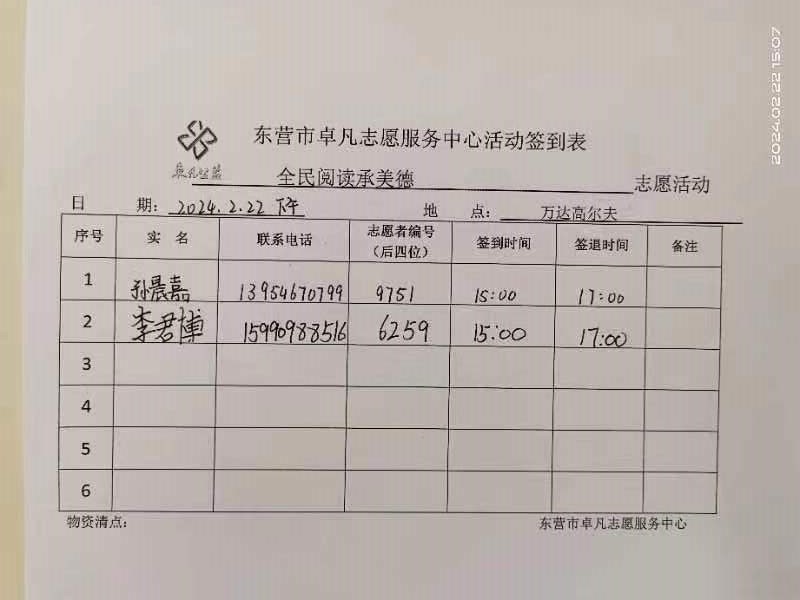 2024.02.22 15:07
东营市卓凡志愿服务中心活动签到表
卓凡公益
全民阅读承美德 志愿活动
日 期： 2024.2.22 下午 地 点： 万达高尔夫
序号 实 名 联系电话 志愿者编号（后四位） 签到时间 签退时间 备注
1 孙晨嘉 13954670799 9751 15:00 17:00
2 李君博 15990988516 6259 15:00 17:00
3
4
5
6
物资清点： 东营市卓凡志愿服务中心